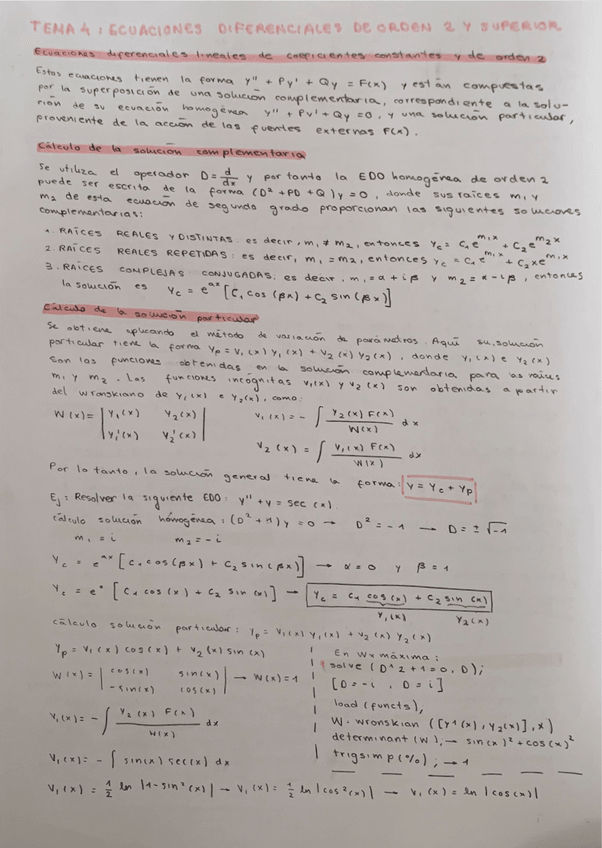 TEMA 4: ECUACIONES DIFERENCIALES DE ORDEN 2 Y SUPERIOR
Ecuaciones diferenciales lineales de coeficientes constantes y de orden 2
Estas ecuaciones tienen la forma y'' + Py' + Qy = F(x) y están compuestas
por la superposición de una solución complementaria, correspondiente a la solu-
ción de su ecuación homogénea y'' + Py' + Qy = 0, y una solución particular,
proveniente de la acción de las fuentes externas F(x).
Cálculo de la solución complementaria
Se utiliza el operador D = d/dx y por tanto la EDO homogénea de orden 2
puede ser escrita de la forma (D² + PD + Q) y = 0, donde sus raíces m₁ y
m₂ de esta ecuación de segundo grado proporcionan las siguientes soluciones
complementarias:
1. RAÍCES REALES Y DISTINTAS: es decir, m₁ ≠ m₂, entonces Yc = C₁e^m₁x + C₂e^m₂x
2. RAÍCES REALES REPETIDAS: es decir, m₁ = m₂, entonces Yc = C₁e^m₁x + C₂xe^m₁x
3. RAÍCES COMPLEJAS CONJUGADAS: es decir, m₁ = α + iβ y m₂ = α - iβ, entonces
la solución es Yc = e^αx [C₁ cos (βx) + C₂ sin (βx)]
Cálculo de la solución particular
Se obtiene aplicando el método de variación de parámetros. Aquí su solución
particular tiene la forma Yp = V₁(x) Y₁(x) + V₂(x) Y₂(x), donde Y₁(x) e Y₂(x)
son las funciones obtenidas en la solución complementaria para las raíces
m₁ y m₂. Las funciones incógnitas V₁(x) y V₂(x) son obtenidas a partir
del wronskiano de Y₁(x) e Y₂(x), como:
W(x) = | Y₁(x) Y₂(x) | V₁(x) = - ∫ Y₂(x) F(x) / W(x) dx
| Y₁'(x) Y₂'(x) | V₂(x) = ∫ Y₁(x) F(x) / W(x) dx
Por lo tanto, la solución general tiene la forma: Y = Yc + Yp
Ej: Resolver la siguiente EDO: y'' + y = sec (x).
Cálculo solución homogénea: (D² + 1) y = 0 → D² = -1 → D = ± √-1
m₁ = i m₂ = -i
Yc = e^αx [C₁ cos(βx) + C₂ sin(βx)] → α = 0 y β = 1
Yc = e⁰ [C₁ cos(x) + C₂ sin(x)] → Yc = C₁ cos(x) + C₂ sin(x)
Y₁(x) Y₂(x)
Cálculo solución particular: Yp = V₁(x) Y₁(x) + V₂(x) Y₂(x)
Yp = V₁(x) cos(x) + V₂(x) sin(x)
W(x) = | cos(x) sin(x) | → W(x) = 1
| -sin(x) cos(x) |
V₁(x) = - ∫ Y₂(x) F(x) / W(x) dx
V₁(x) = - ∫ sin(x) sec(x) dx
En Wxmáxima:
solve (D^2 + 1 = 0, D);
[D = -i, D = i]
load (functs),
W: wronskian ([y1(x), y2(x)], x)
determinant (W); → sin(x)² + cos(x)²
trigsimp(%); → 1
V₁(x) = 1/2 ln |1 - sin²(x)| → V₁(x) = 1/2 ln |cos²(x)| → V₁(x) = ln |cos(x)|